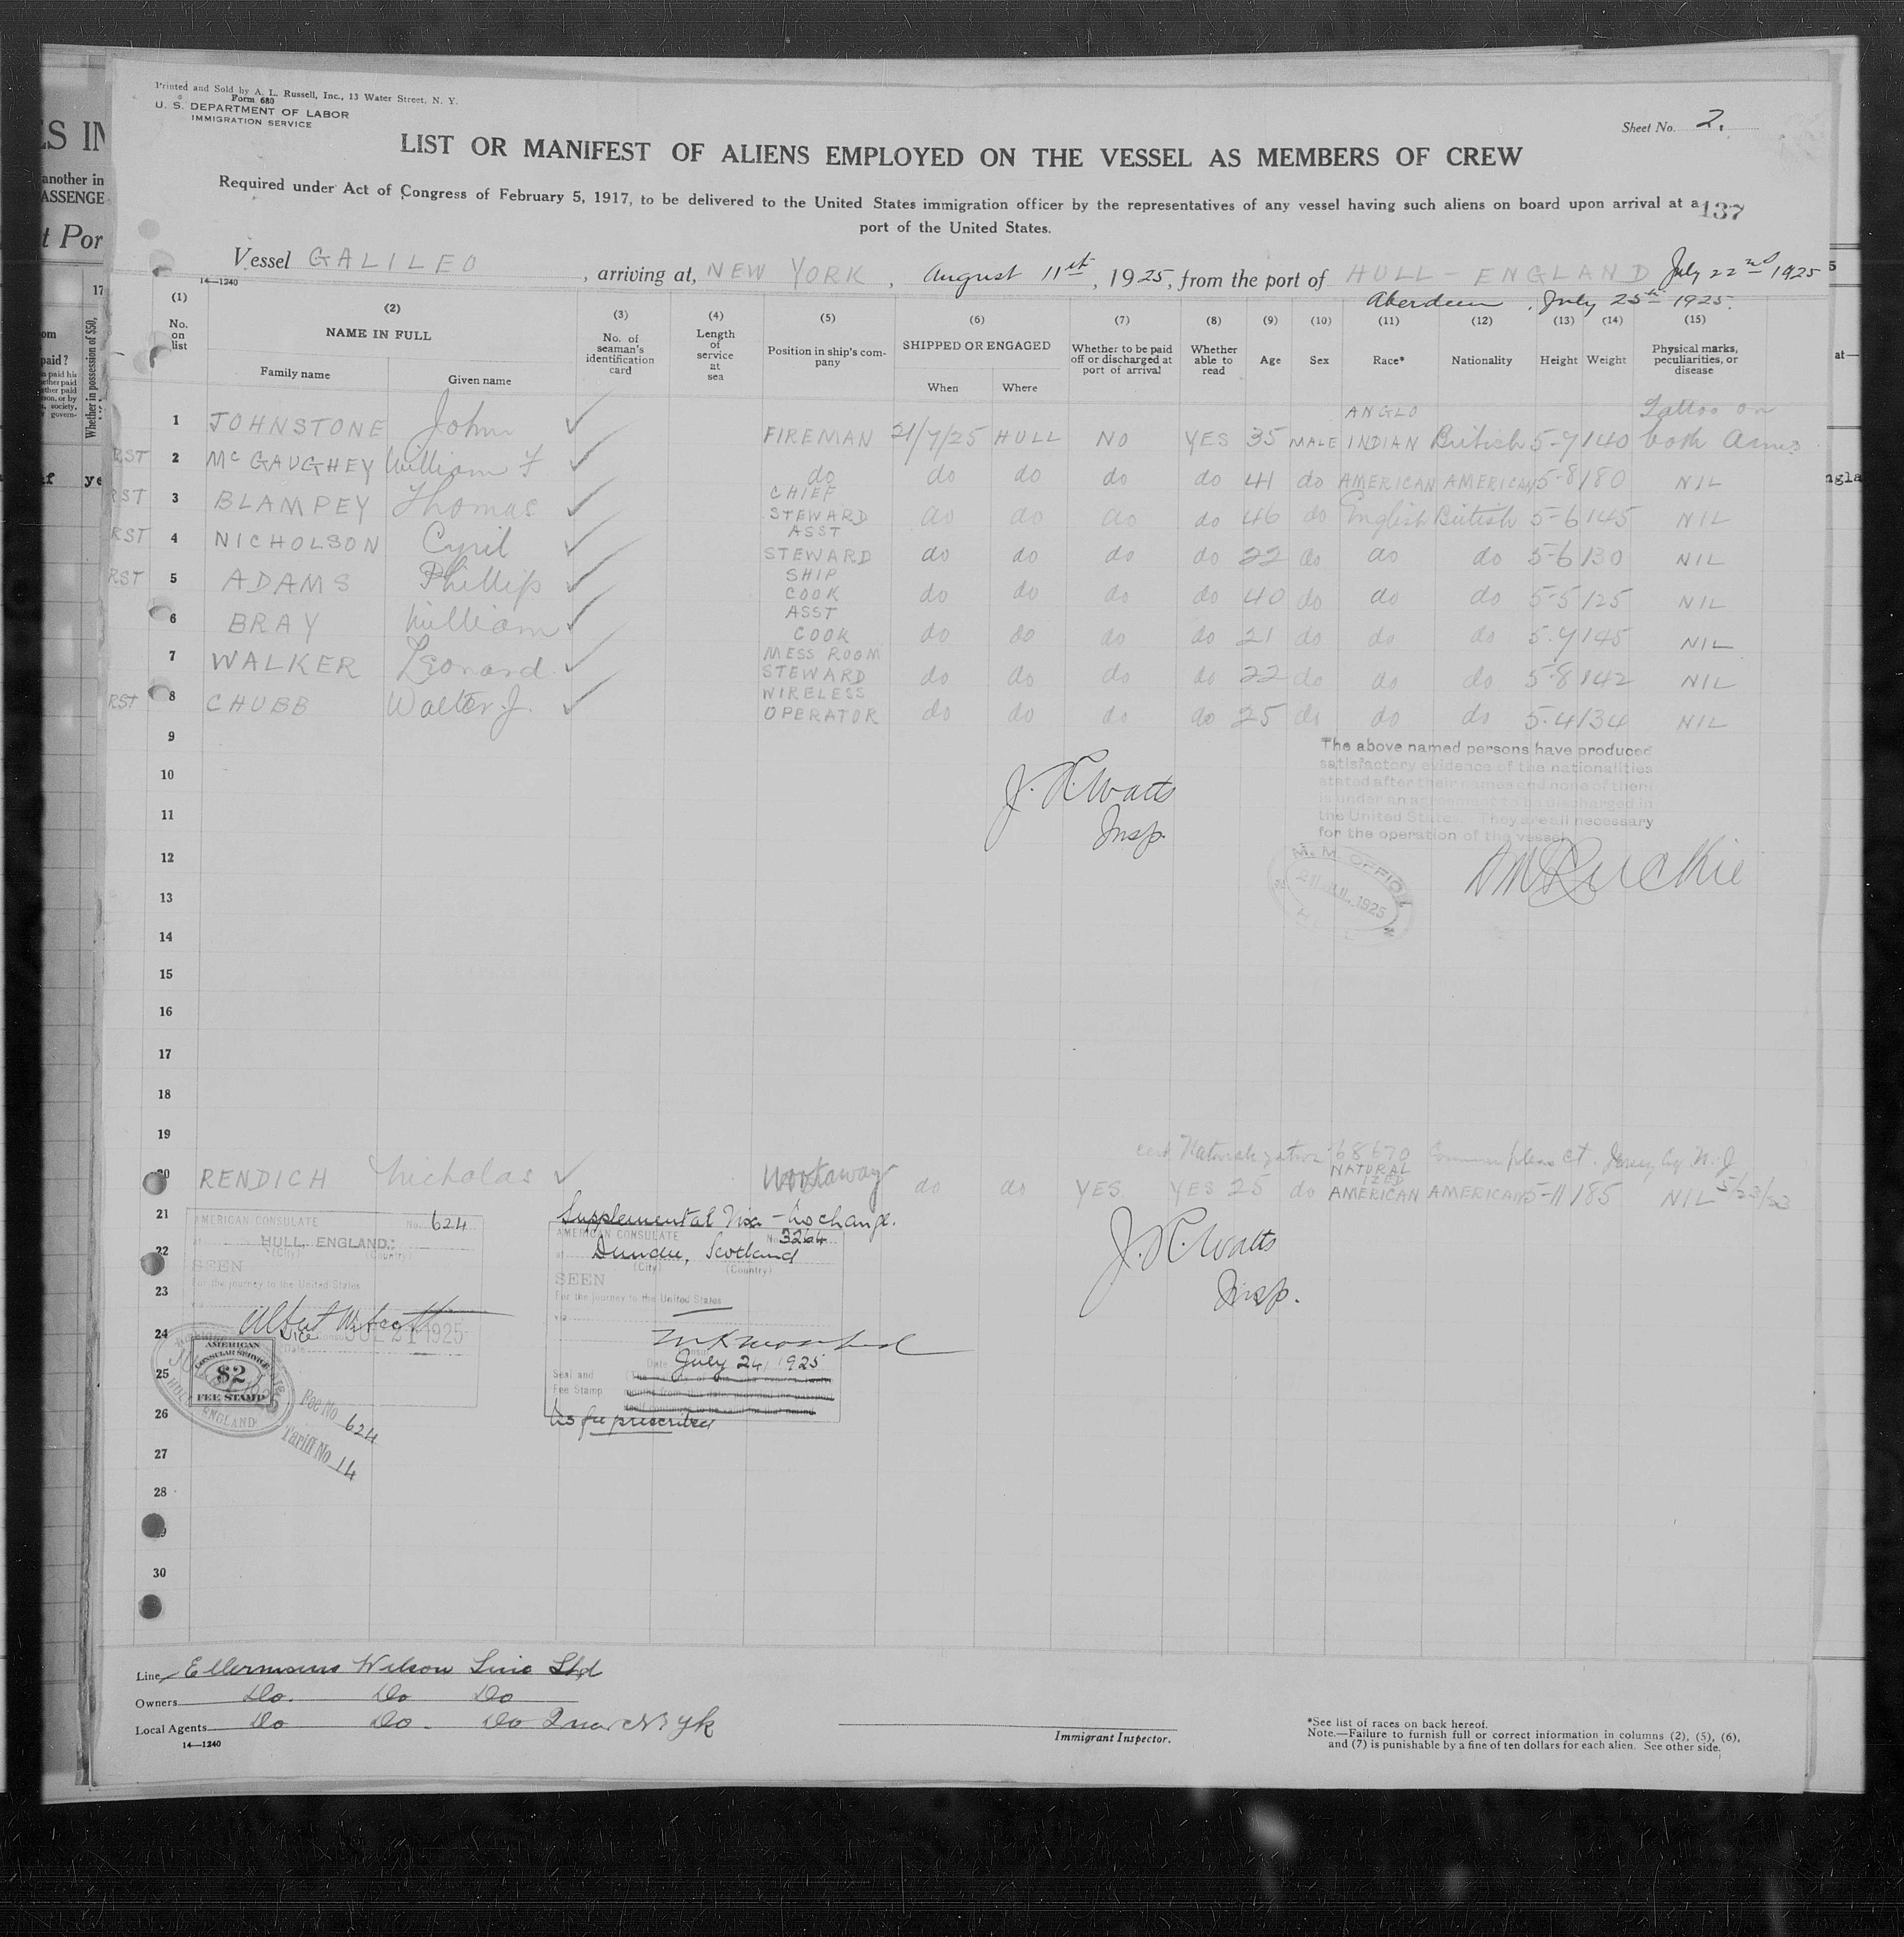 Printed and Sold by A. L. Russell, Inc., 13 Water Street, N. Y.
Form 680
U. S. DEPARTMENT OF LABOR
IMMIGRATION SERVICE
Sheet No. 2.
LIST OR MANIFEST OF ALIENS EMPLOYED ON THE VESSEL AS MEMBERS OF CREW
Required under Act of Congress of February 5, 1917, to be delivered to the United States immigration officer by the representatives of any vessel having such aliens on board upon arrival at a
port of the United States.
137
Vessel GALILEO, arriving at, NEW YORK, August 11th, 1925, from the port of HULL - ENGLAND July 22nd 1925
14—1240
Aberdeen, July 25th 1925.
(1) (2) (3) (4) (5) (6) (7) (8) (9) (10) (11) (12) (13) (14) (15)
No. on list
NAME IN FULL
Family name Given name
No. of seaman's identification card
Length of service at sea
Position in ship's company
SHIPPED OR ENGAGED
When Where
Whether to be paid off or discharged at port of arrival
Whether able to read
Age Sex Race* Nationality Height Weight
Physical marks, peculiarities, or disease
1 JOHNSTONE John ✓ FIREMAN 21/7/25 HULL NO YES 35 MALE ANGLO INDIAN British 5-7 140 Tattoo on both Arms
RST 2 McGAUGHEY William F ✓ do do do do do 41 do AMERICAN AMERICAN 5-8 180 NIL
RST 3 BLAMPEY Thomas ✓ CHIEF STEWARD do do do do 46 do English British 5-6 145 NIL
RST 4 NICHOLSON Cyril ✓ ASST STEWARD do do do do 22 do do do 5-6 130 NIL
RST 5 ADAMS Phillip ✓ SHIP COOK do do do do 40 do do do 5-5 125 NIL
6 BRAY William ✓ ASST COOK do do do do 21 do do do 5-7 145 NIL
7 WALKER Leonard ✓ MESS ROOM STEWARD do do do do 22 do do do 5-8 142 NIL
RST 8 CHUBB Walter J. ✓ WIRELESS OPERATOR do do do do 25 do do do 5-4 134 NIL
9
The above named persons have produced
satisfactory evidence of the nationalities
stated after their names and none of them
is under an agreement to be discharged in
the United States. They are all necessary
for the operation of the vessel
10
J. R. Watts
Insp.
11
12
M. M. OFFICE
21 JUL 1925
13
14
15
16
17
18
19
cert Naturalization 68670 Common pleas Ct. Jersey City N. J. 5/23/23
20 RENDICH Nicholas ✓ Workaway do do YES YES 25 do NATURALIZED AMERICAN AMERICAN 5-11 185 NIL
21
AMERICAN CONSULATE No. 624
at HULL, ENGLAND.
(City) (Country)
SEEN
For the journey to the United States
via
Vice Consul
JUL 21 1925
Date
Supplemental Visa - no change.
AMERICAN CONSULATE No. 3264
at Dundee, Scotland
(City) (Country)
SEEN
For the journey to the United States
via
Date July 24, 1925
Seal and
Fee Stamp
No fee prescribed
J. R. Watts
Insp.
22
23
24
25
AMERICAN
CONSULAR SERVICE
$2
FEE STAMP
HULL, ENGLAND
Fee No. 624
Tariff No. 14
26
27
28
30
Line Ellermans Wilson Line Ltd
Owners Do. Do Do
Local Agents Do Do. Do
14—1240
Immigrant Inspector.
*See list of races on back hereof.
Note.—Failure to furnish full or correct information in columns (2), (5), (6),
and (7) is punishable by a fine of ten dollars for each alien. See other side.